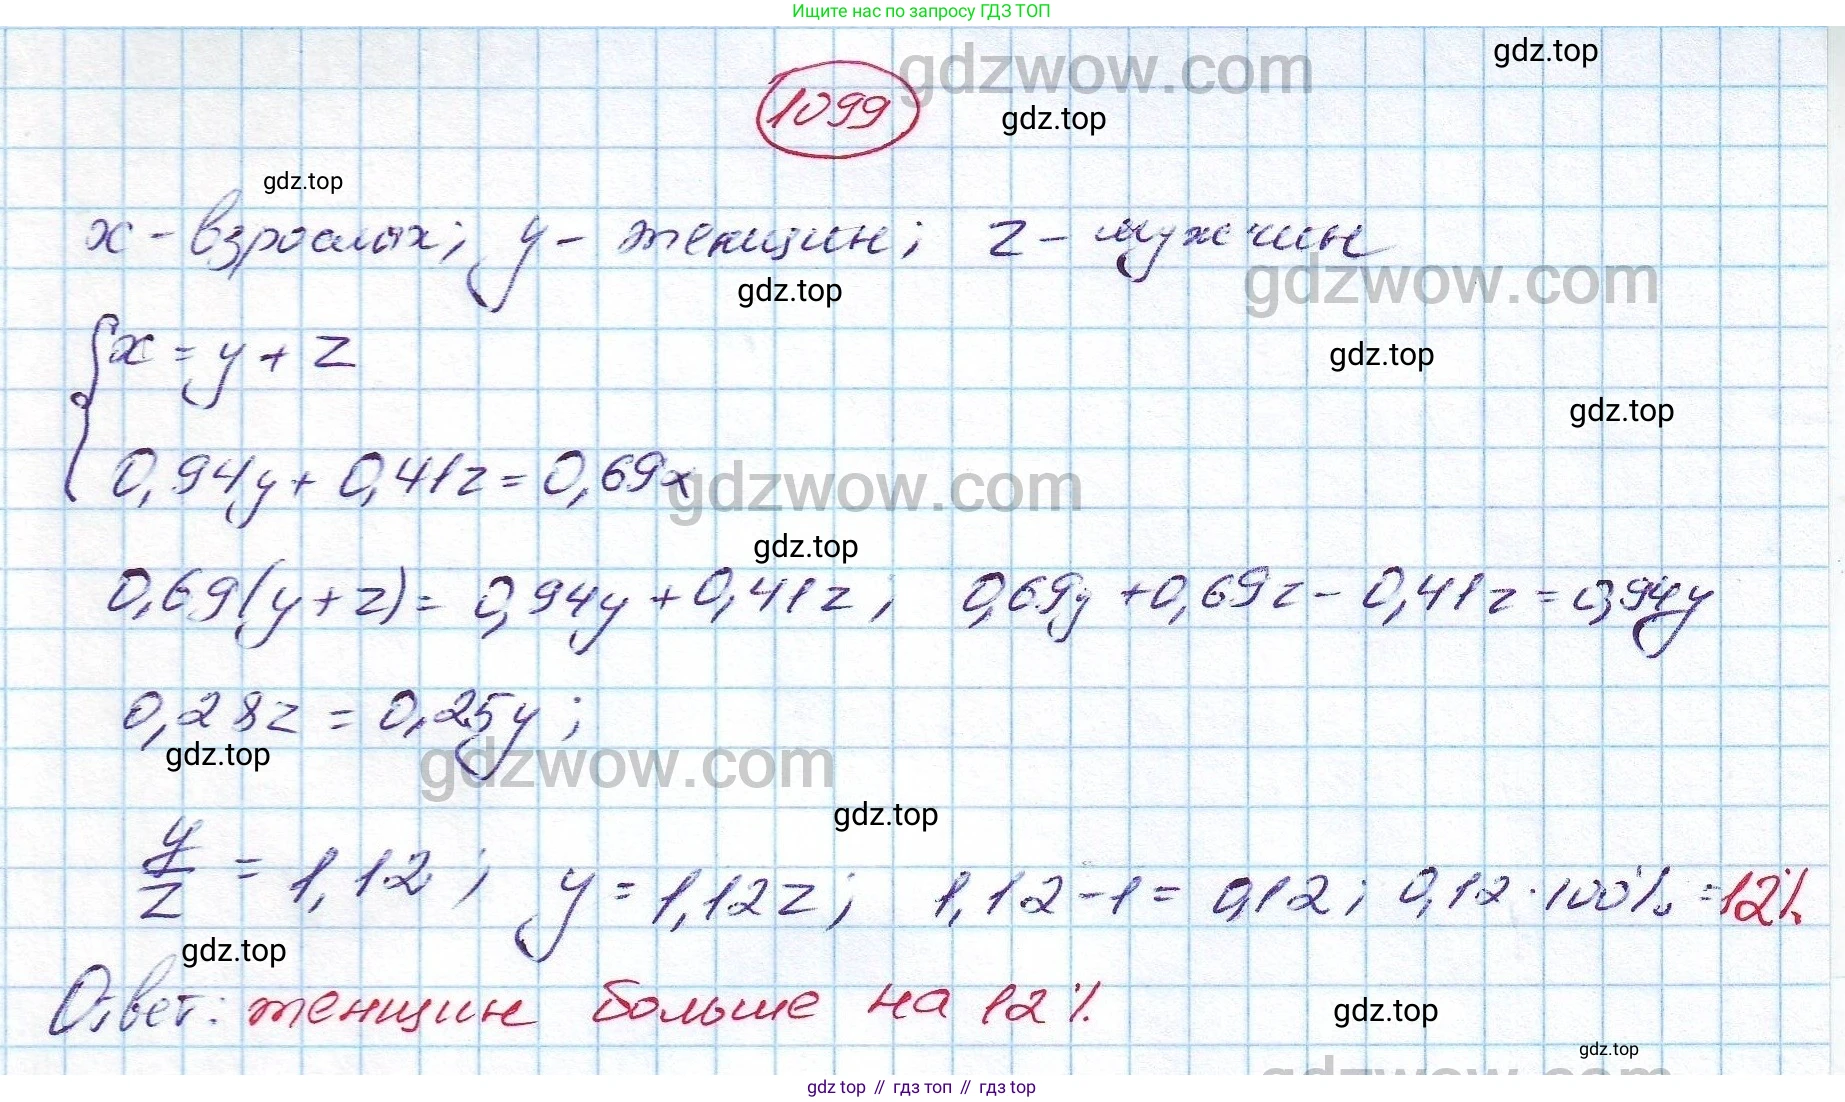 Ищите нас по запросу ГДЗ ТОП
gdz.top
gdzwow.com
1099
gdz.top
gdz.top
x - взрослых; y - женщин; z - мужчин
gdzwow.com
gdz.top
x = y + z
gdz.top
gdz.top
0,94y + 0,41z = 0,69x
gdzwow.com
gdz.top
0,69(y + z) = 0,94y + 0,41z; 0,69y + 0,69z - 0,41z = 0,94y
0,28z = 0,25y;
gdz.top
gdzwow.com
gdz.top
y/z = 1,12; y = 1,12z; 1,12 - 1 = 0,12; 0,12 · 100% = 12%
gdz.top
Ответ: женщин больше на 12%.
gdz.top
gdz.top
gdzwow.com
gdz top // гдз топ // гдз top